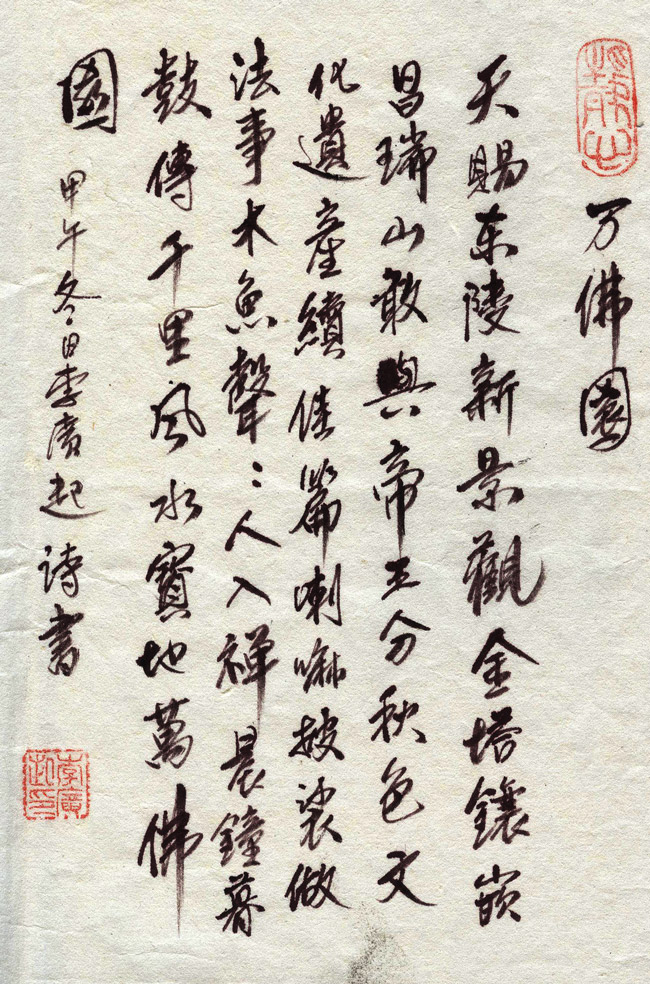 万佛園
天賜东陵新景觀金塔鑲嵌
昌瑞山敢與帝王分秋色文
化遺產續佳篇喇嘛披裟做
法事木魚聲々人入禅晨鐘暮
鼓傳千里风水寶地萬佛
園
甲午冬日李廣起詩書
李廣起印